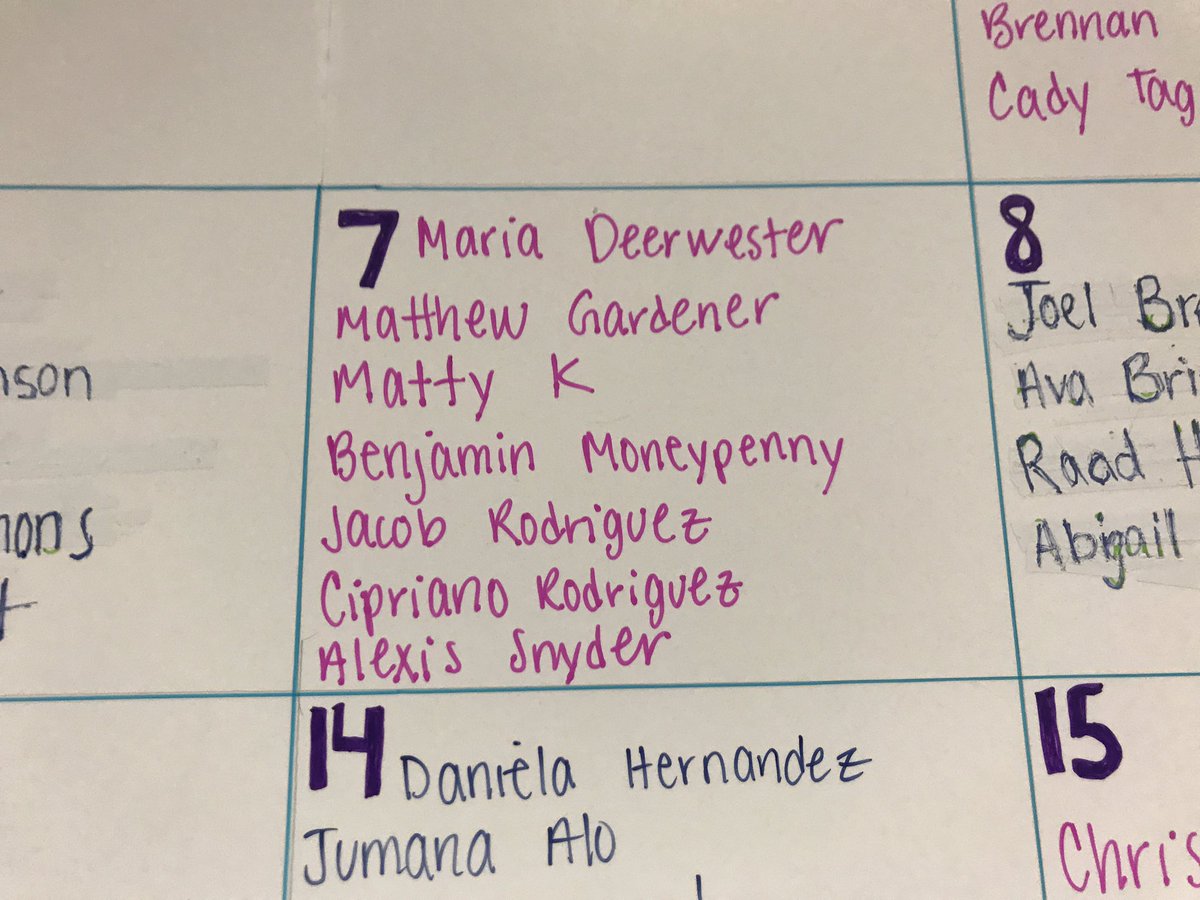 Brennan
Cady Tag
7 Maria Deerwester
Matthew Gardener
Matty K
Benjamin Moneypenny
Jacob Rodriguez
Cipriano Rodriguez
Alexis Snyder
8
Joel
Ava
Raad
Abigail
14 Daniela Hernandez
Jumana Alo
15
Chris